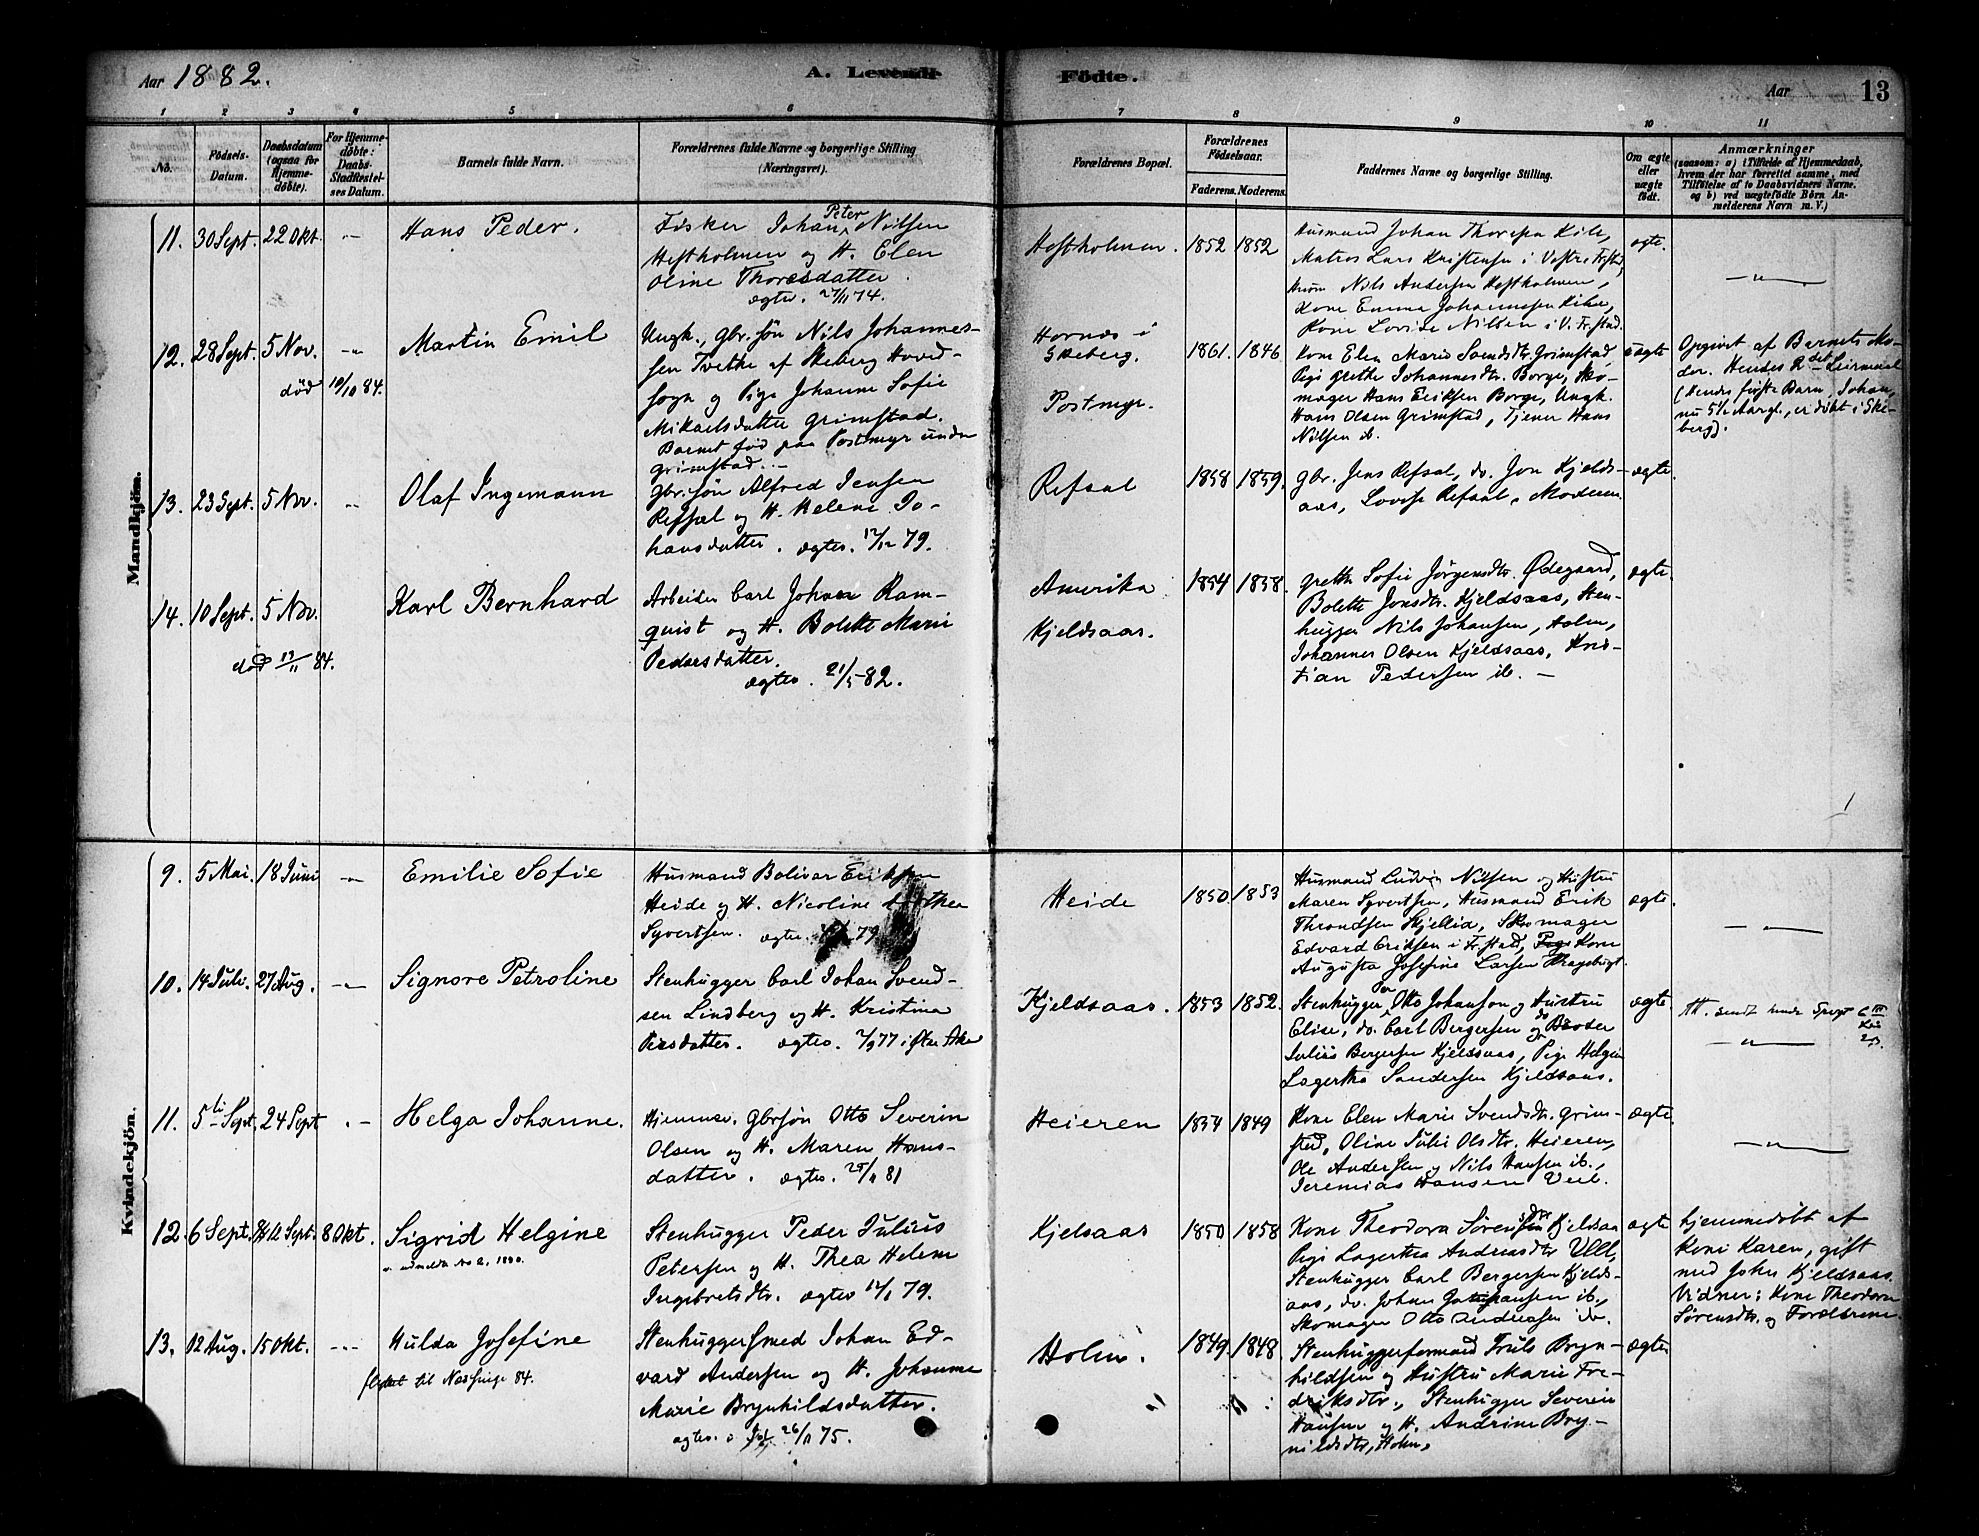 Aar 1882.
A. Levende
Födte.
Aar
13
1 2 3 4 5 6 7 8 9 10 11
No.
Födsels-
Datum.
Daabsdatum
(ogsaa for
Hjemme-
döbte).
For Hjemme-
döbte:
Daabs-
Stadfæstel-
ses Datum.
Barnets fulde Navn.
Forældrenes fulde Navne og borgerlige Stilling
(Næringsvei).
Forældrenes Bopæl.
Forældrenes
Födselsaar.
Faderens. Moderens.
Faddernes Navne og borgerlige Stilling.
Om ægte
eller
uægte
födt.
Anmærkninger
(saasom: a) i Tilfælde af Hjemmedaab,
hvem der har forrettet samme, med
Tilföielse af to Daabsvidners Navne.
og b) ved uægtefödte Börn An-
melderens Navn m. V.)
Mandkjön.
11. 30 Sept. 22 Okt. -"-
Hans Peder.
Fisker Johan Peter Nilsen
Heftholmen og H. Elen
Oline Thoresdatter.
ægtev. 27/11 74.
Heftholmen. 1852 1852
Husmand Johan Thoresen Kile,
Matros Lars Kristensen i Vestre Fr.stad,
Husm Nils Andersen Heftholmen,
Kone Emma Johannesen Kile,
Kone Lovise Nilsen i V. Fr.stad.
ægte.
-"-
12. 28 Sept. 5 Nov. -"-
død 10/10 84.
Martin Emil
Ungk., Gbr.søn Nils Johannes-
sen Tvethe af Skeberg Hoved-
sogn og Pige Johanne Sofie
Mikaelsdatter Grimstad.
Barnet fød paa Postmyr under
Grimstad. -
Hornæs i
Skeberg.
Postmyr.
1861. 1846
Kone Elen Marie Svendsdtr. Grimstad,
Pige Grethe Johannesdtr. Borge, Sko-
mager Hans Eriksen Borge, Ungk.
Hans Olsen Grimstad, Tjener Hans
Nilsen ib.
uægte
Opgivet af Barnets Mo-
der. Hendes 2det Leiermaal
(Hendes første Barn, Johan,
nu 5½ Aarg., er døbt i Ske-
berg).
13. 23 Sept. 5 Nov. -"-
Olaf Ingemann
Gbr.søn Alfred Jensen
Refsal og H. Helene Jo-
hansdatter. ægtev. 12/12 79.
Refsal 1858 1859.
Gbr. Jens Refsal, do. Jon Kjelds-
aas, Lovise Refsal, Moderen
ægte.
14. 10 Sept. 5 Nov.
død 13/11 84.
Karl Bernhard
Arbeider Carl Johan Ram-
quist og H. Bolette Marie
Pedersdatter.
ægtev. 21/5 82.
Amerika
Kjeldsaas.
1854 1858.
Grethe Sofie Jørgensdtr. Ødegaard,
Bolette Jonsdtr. Kjeldsaas, Sten-
hugger Nils Johansen, Holm,
Johannes Olsen Kjeldsaas, Kris-
tian Pedersen ib. -
ægte.
Kvindekjön.
9. 5 Mai. 18 Juni -"-
Emilie Sofie
Husmand Bolivar Eriksen
Heide og H. Nicoline
Syvertsen. ægtev. 79
Heide 1850 1853
Husmand Ludvig Nilsen og Hustru
Maren Syvertsen, Husmand Erik
Throndsen Skjellia, Skomager
Edvard Eriksen i Fr.stad, Pige Kone
Augusta Josefine Larsen
ægte.
-"-
10. 14 Juli. 27 Aug. -"-
Signore Petroline
Stenhugger Carl Johan Svend-
sen Lindberg og H. Kristina
Piersdatter. ægtev. 77 i
Kjeldsaas. 1853 1852.
Stenhugger Otto Johanson og Hustru
Elise, do. Carl Bergersen og do Broder
Julius Bergersen Kjeldsaas, Pige Helga
Lagertha Sandersen Kjeldsaas.
ægte.
-"-
11. 5te Sept. 24 Sept -"-
Helga Johanne.
Hjemmev. Gbrsøn Otto Severin
Olsen og H. Maren Hans-
datter. ægtev. 25/11 81
Heieren 1854 1849
Kone Elen Marie Svendsdtr. Grim-
stad, Oline Julie Olsdtr. Heieren,
Ole Andersen og Nils Hansen ib.,
Jeremias Hansen
ægte.
-"-
12. 6 Sept. Sept. 8 Okt.
Sigrid Helgine
1890.
Stenhugger Peder Julius
Petersen og H. Thea Helene
Ingebretsdtr. ægtev 79.
Kjelsaas 1850 1858
Kone Theodora Sørensdtr Kjeldsaa
Pige Lagertha Andreasdtr
Stenhugger Carl Bergersen Kjelds-
aas, do. Johan
Skomager Otto Andreasen do.
ægte
hjemmedøbt af
Kone Karen, gift
med John Kjeldsaas.
Vidner: Kone Theodora
Sørensdtr. og Forældrene
13. 12 Aug. 15 Okt. -"-
Hulda Josefine
flyttet til 84.
Stenhuggersmed Johan Ed-
vard Andersen og H. Johanne
Marie Brynhildsdatter.
ægtev. 26/11 75.
Holm. 1849. 1848.
Stenhuggerformand Truls Bryn-
hildsen og Hustru Marie Fre-
driksdtr., Stenhugger Severin
Hansen og H. Andrine Bry-
nildsdtr, Holm.
ægte.